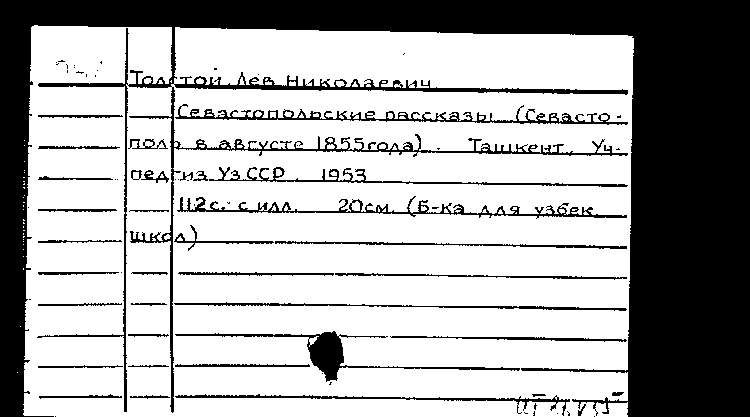 Толстой Лев Николаевич
Севастопольские рассказы (Севасто-
поль в августе 1855года). Ташкент, Уч-
педгиз УзССР, 1953
112с. с илл. 20см. (Б-ка для узбек.
школ)